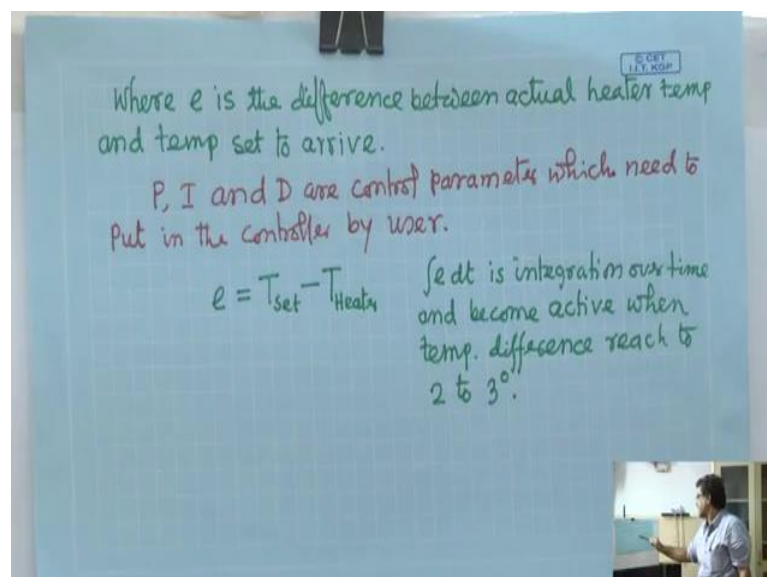 © CET
I.I.T. KGP
Where e is the difference between actual heater temp
and temp set to arrive.
P, I and D are control parameter which need to
Put in the controller by user.
e = T_Set - T_Heater
∫e dt is integration over time
and become active when
temp. difference reach to
2 to 3°.